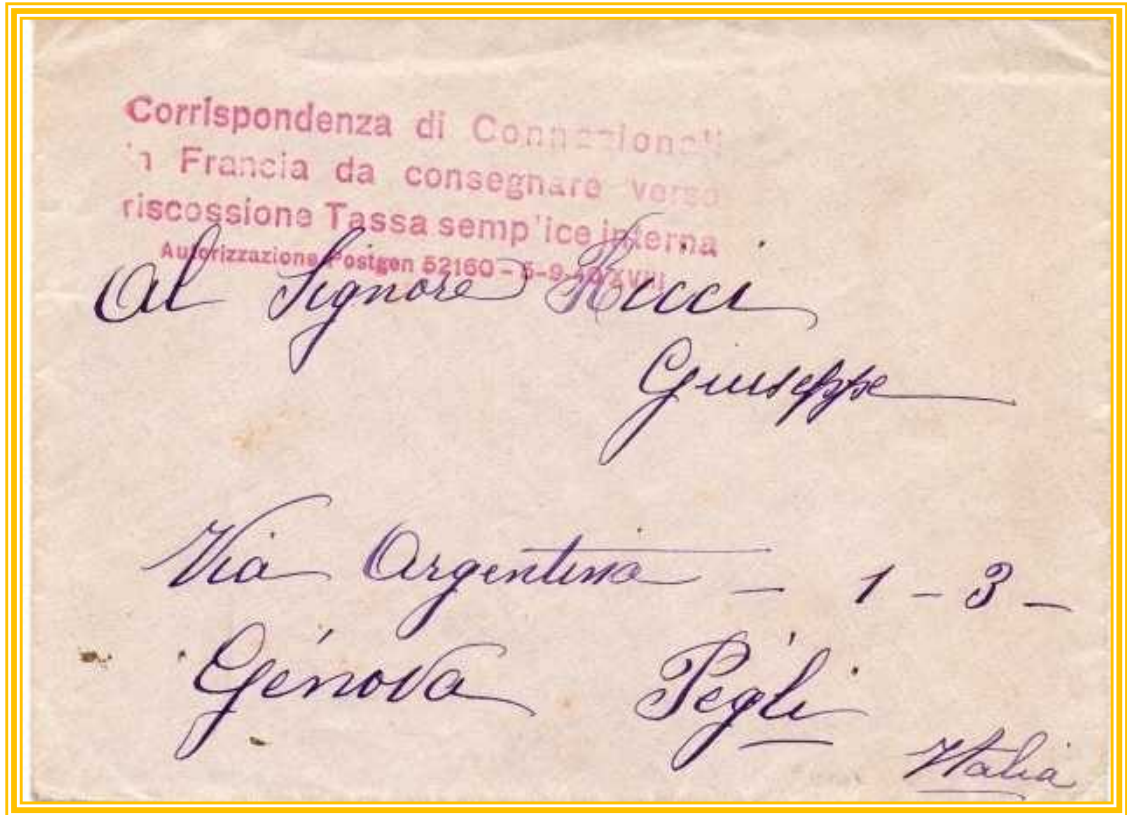 Corrispondenza di Connazionali
in Francia da consegnare verso
riscossione Tassa semplice interna
Autorizzazione Postgen 52160 - 5-9-40/XVIII
Al Signore Ricci
Giuseppe
Via Argentina - 1 - 3 -
Genova Pegli
Italia